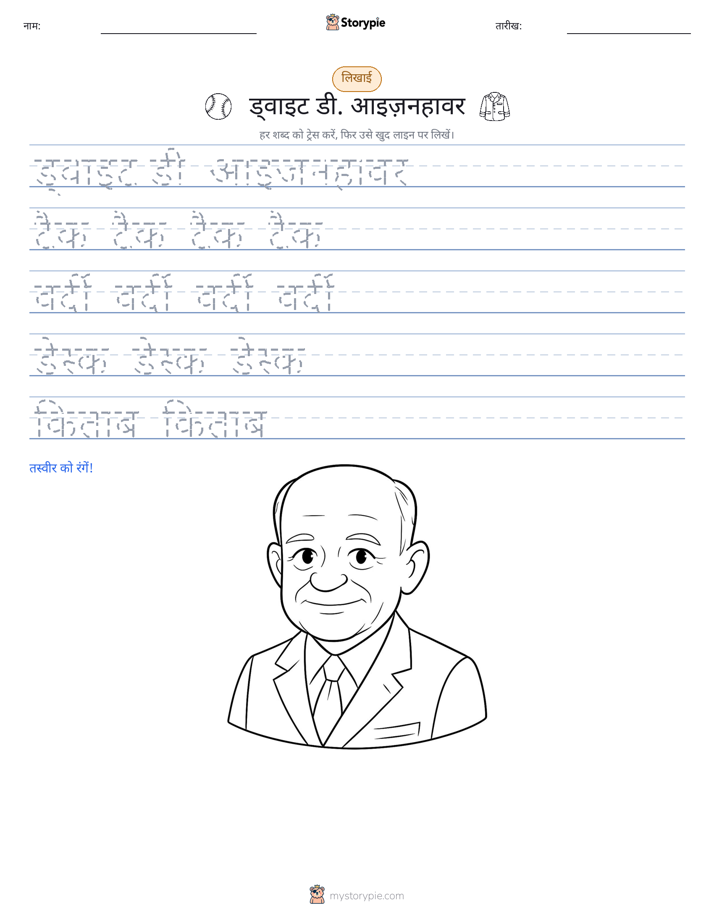 नाम:
Storypie
तारीख:
लिखाई
ड्वाइट डी. आइज़नहावर
हर शब्द को ट्रेस करें, फिर उसे खुद लाइन पर लिखें।
ड्वाइट डी आइजनहावर
टैंक टैंक टैंक टैंक
वर्दी वर्दी वर्दी वर्दी
डेस्क डेस्क डेस्क
किताब किताब
तस्वीर को रंगें!
mystorypie.com